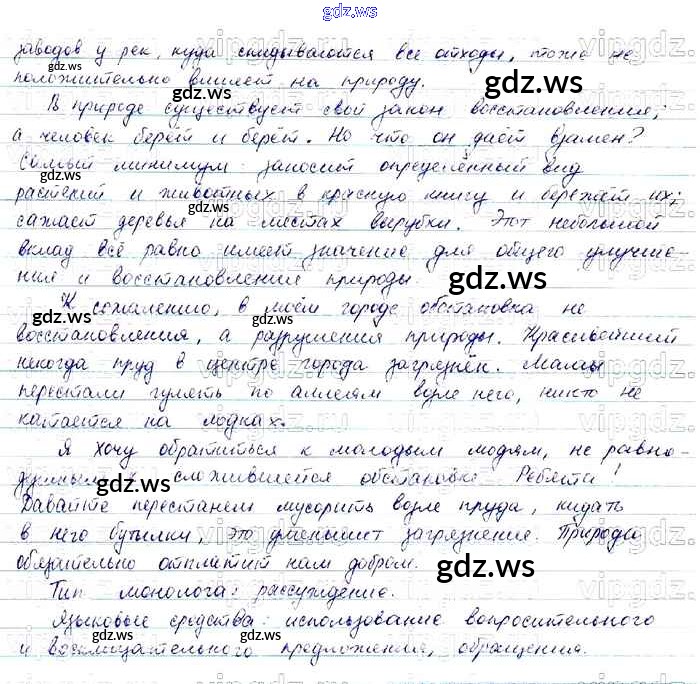 gdz.ws
заводов у рек, куда скидываются все отходы, тоже не
положительно влияет на природу.
gdz.ws
В природе существует свой закон восстановления,
а человек берёт и берёт. Но что он даёт взамен?
Самый минимум: заносит определённый вид
растений и животных в красную книгу и бережёт их;
сажает деревья на местах вырубки. Этот небольшой
вклад всё равно имеет значение для общего улучше-
ния и восстановления природы.
К сожалению, в моём городе обстановка не
восстановления, а разрушения природы. Красивейший
некогда пруд в центре города загрязнён. Мамы
перестали гулять по аллеям возле него, никто не
катается на лодках.
Я хочу обратиться к молодым людям, не равно-
душным к сложившейся обстановке. Ребята!
Давайте перестанем мусорить возле пруда, кидать
в него бутылки, это уменьшит загрязнение. Природа
обязательно отплатит нам добром.
Тип монолога: рассуждение.
Языковые средства: использование вопросительного
и восклицательного предложения, обращения.
gdz.ws